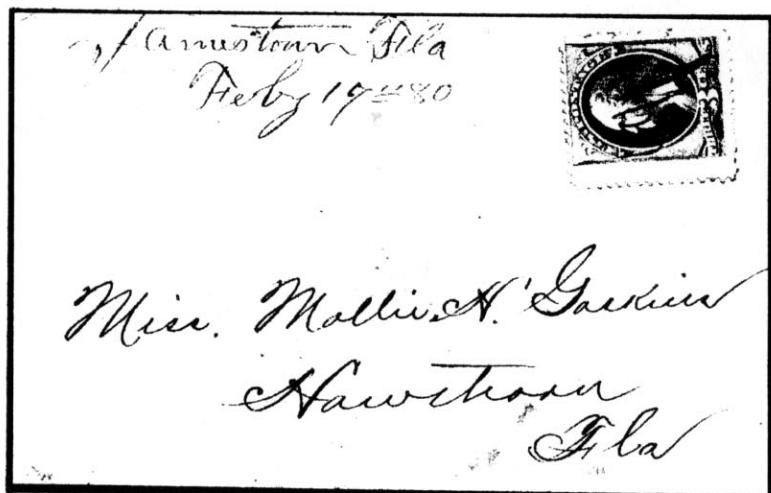 Jamestown Fla
Feby 19th 80
Miss. Mollie. H. Gaskins
Hawthorn
Fla